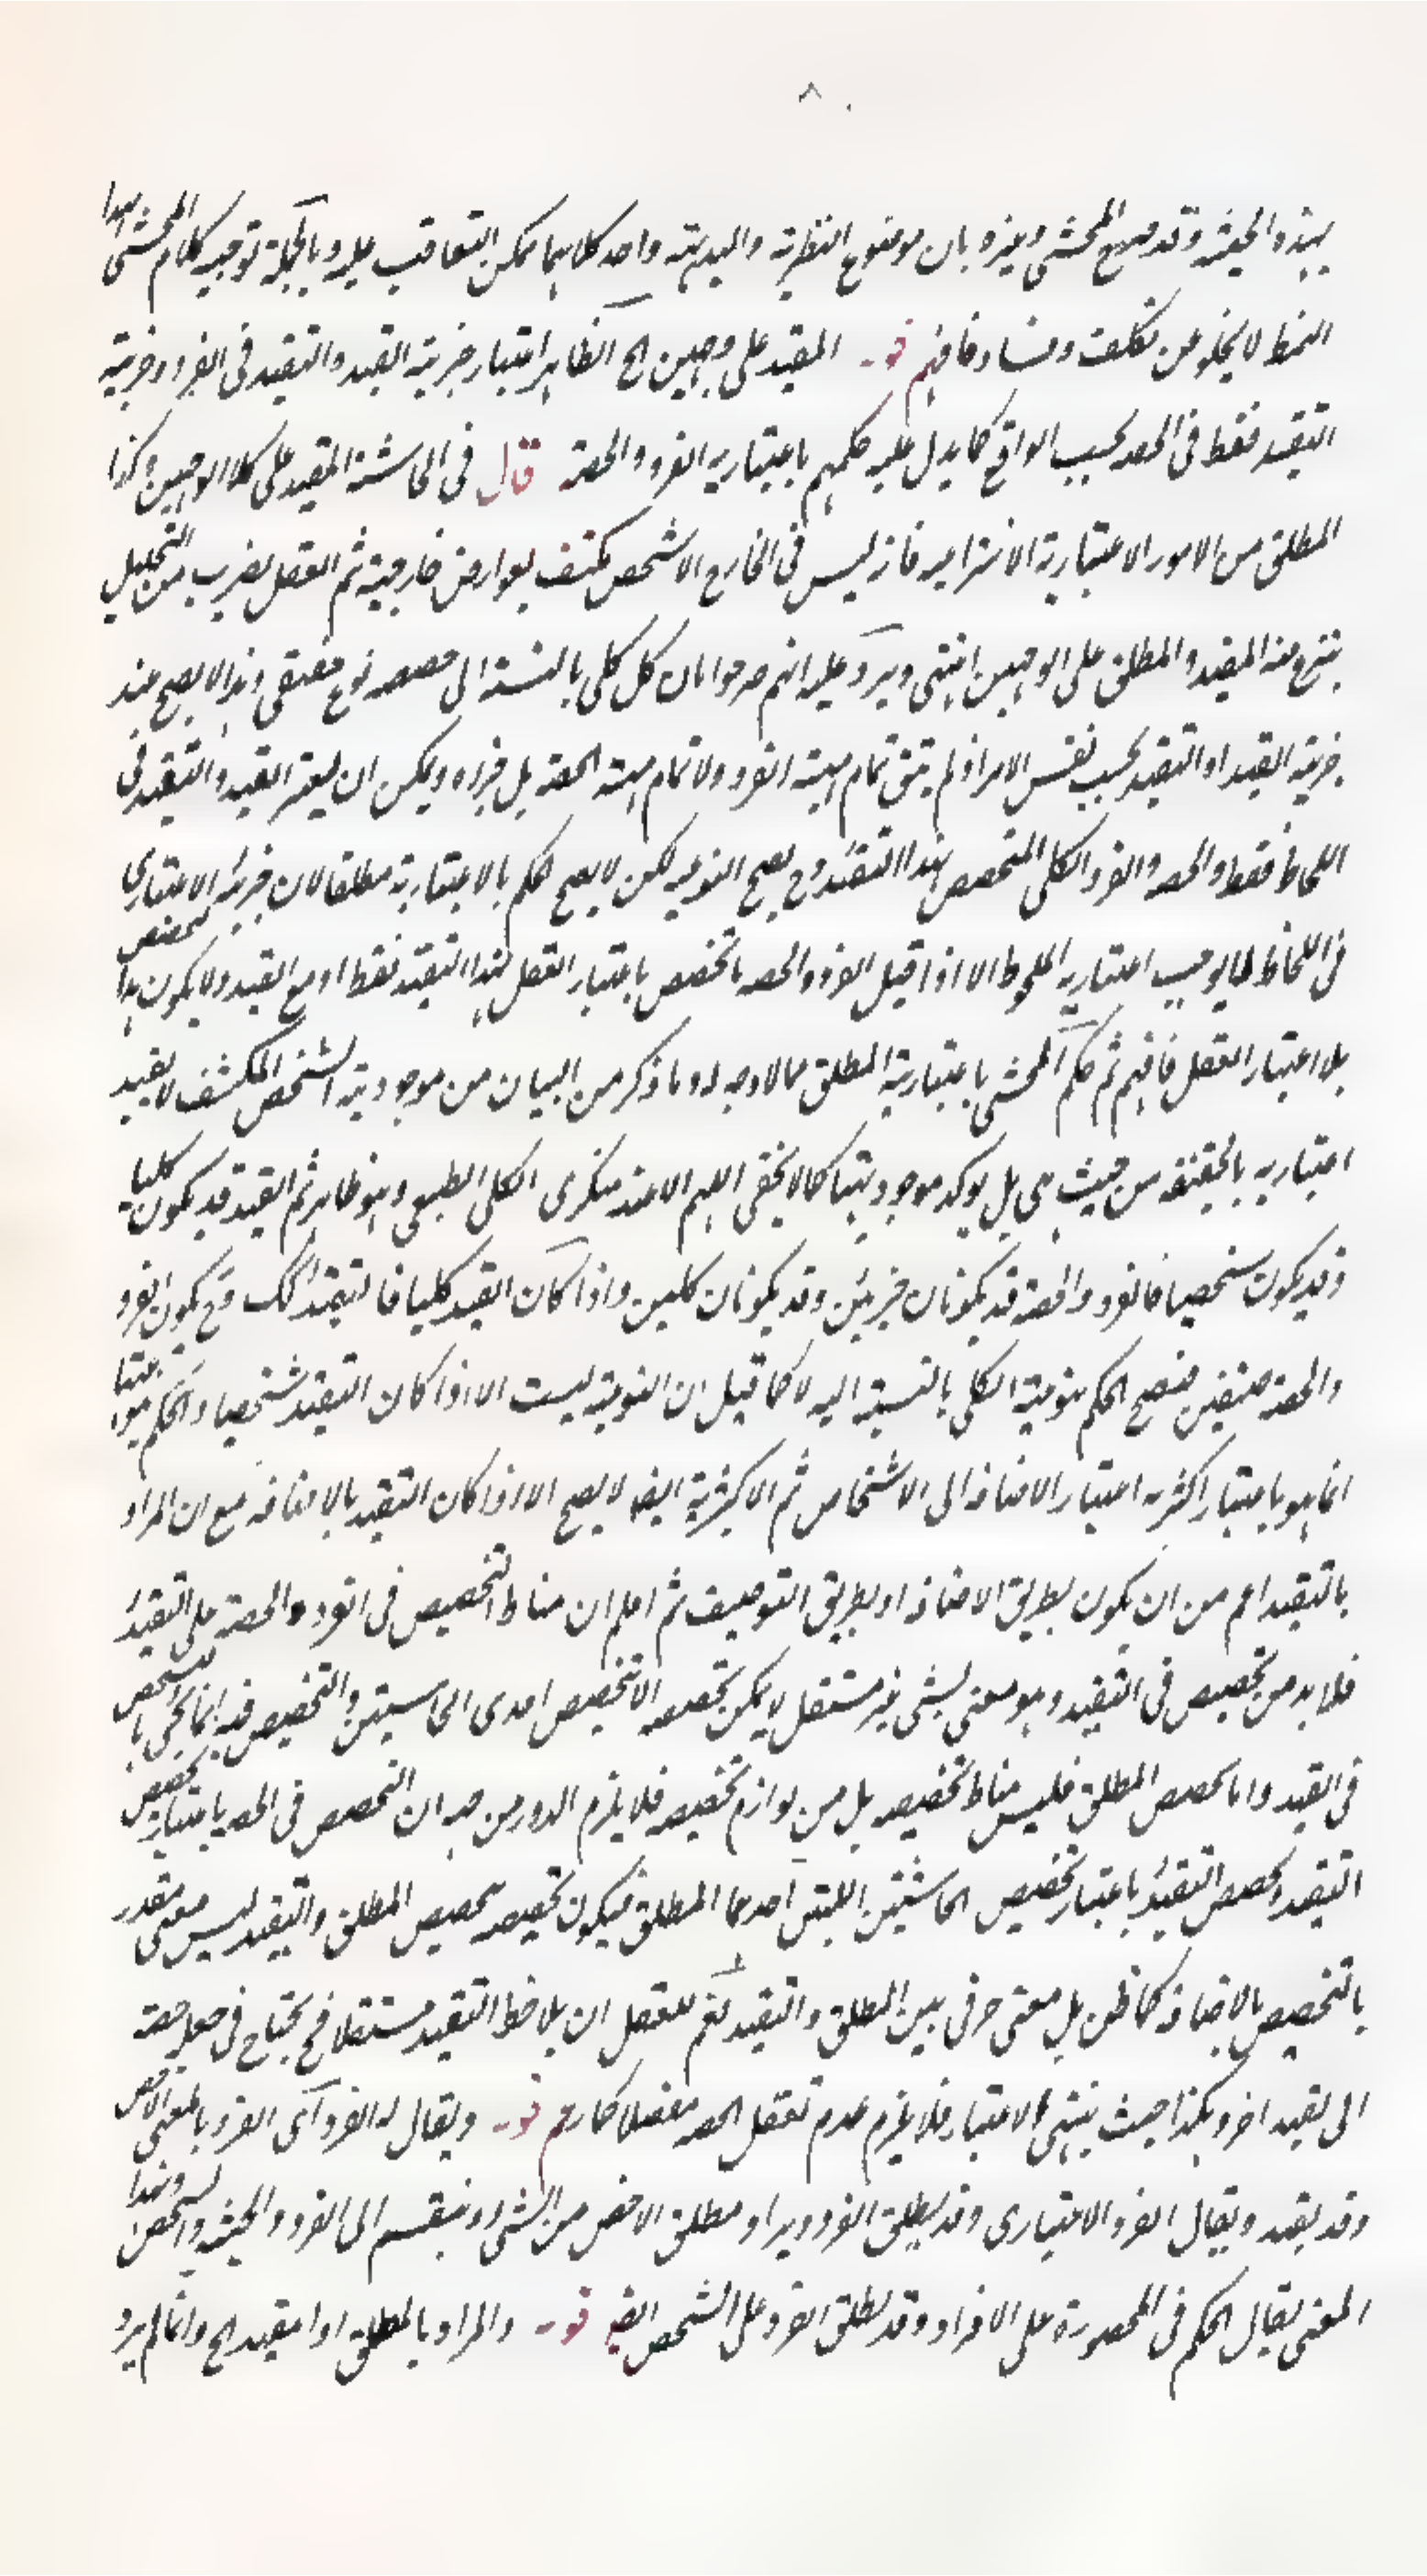 ٨
بهذه الحيثية وقد صرح المحشى وغيره بان موضوع النظرية والبديهة واحد كلاهما يمكن التعاقب عليه وبالجملة توجيه كلام المحشى بهذا
النمط لا يخلو من تكلف وفساد فافهم قوله المقيد على وجهين الخ الظاهر اعتبار جزئية القيد والتقيد فى الفرد وجزئية
التقيد فقط فى الحصة بحسب الواقع كما يدل عليه حكمهم باعتبارية الفرد والحصة قال فى الحاشية المقيد على كلا الوجهين وكذا
المطلق من الامور الاعتبارية الانتزاعية فانه ليس فى الخارج الا شخص مكتنف بعوارض خارجية ثم العقل بضرب من التحليل
ينتزع منه المقيد والمطلق على الوجهين انتهى ويرد عليه انهم صرحوا بان كل كلى بالنسبة الى حصصه نوع حقيقى وهذا لا يصح عند
جزئية القيد او التقيد بحسب نفس الامر اذ لم يبق تمام مهية الفرد ولا تمام مهية الحصة بل جزاه ويمكن ان يعتبر القيد والتقيد فى
اللحاظ فقط والحصة والفرد الكلى المتخصص بهذا التقيد وح يصح النوعية لكن لا يصح حكم بالاعتبارية مطلقا لان جزئية الاعتبارى
فى اللحاظ لا يوجب اعتبارية الملحوظ الا اذا قيل الفرد والحصة ما تخصص باعتبار العقل بهذا التقيد فقط او مع القيد ولا يكون بدا التخصص
بلا اعتبار العقل فافهم ثم حكم المحشى باعتبارية المطلق مما لا وجه له وما ذكر من البيان من موجودية الشخص المكتنف لا يفيد
اعتبارية بالحقيقة من حيث هى بل يوكد موجوديتها كما لا يخفى اللهم الا عند منكرى الكلى الطبعى وهو ظاهر ثم القيد قد يكون كليا
وقد يكون شخصيا فالفرد والحصة قد يكونان جزئين وقد يكونان كليين واذا كان القيد كليا فالتقيد كك وح يكون الفرد
والحصة صنفين فيصح الحكم بنوعية الكلى بالنسبة اليه لا كما قيل ان النوعية ليست الا اذا كان التقيد شخصيا والحكم
انما هو باعتبار اكثرية اعتبار الاضافة الى الاشخاص ثم الاكثرية ايضا لا يصح الا اذا كان التقيد بالاضافة مع ان المراد
بالتقيد اعم من ان يكون بطريق الاضافة او بطريق التوصيف ثم اعلم ان مناط التخصيص فى الفرد والحصة على التقيد
فلا بد من تخصيص فى التقيد وهو معنى نسبى غير مستقل لا يمكن تخصصه الا بتخصيص احدى الحاشيتين والتخصيص فيه انما يجئ بالتشخص
فى القيد واما تخصص المطلق فليس مناط تخصيصه بل من لوازم تخصيصه فلا يلزم الدور من جهة ان التخصص فى الحصة باعتبار تخصيص
التقيد وتخصص التقيد باعتبار تخصيص الحاشيتين اللتين احدهما المطلق فيكون تخصيصه بتخصيص المطلق والتقيد ليس معنى متقدر
بالتخصيص بالاضافة كما ظن بل معنى حرفى بين المطلق والتقيد نعم للعقل ان يلاحظ التقيد مستقلا فح يحتاج فى جعله حصة
الى تقيد اخر وهكذا حيث ينتهى الاعتبار فلا يلزم عدم تعقل الحصة مفصلا كما زعم قوله ويقال له الفرد آى الفرد بالمعنى الاخص
وقد يقيد ويقال الفرد الاعتبارى وقد يطلق الفرد ويراد مطلق الاخص من الشى وينقسم الى الفرد والحيثية والشخص وبهذا
المعنى يقال الحكم فى المحصورة على الافراد وقد يطلق الفرد على الشخص ايضا قوله والمراد بالمطلق اذا يقيد الخ وانما لم يرد